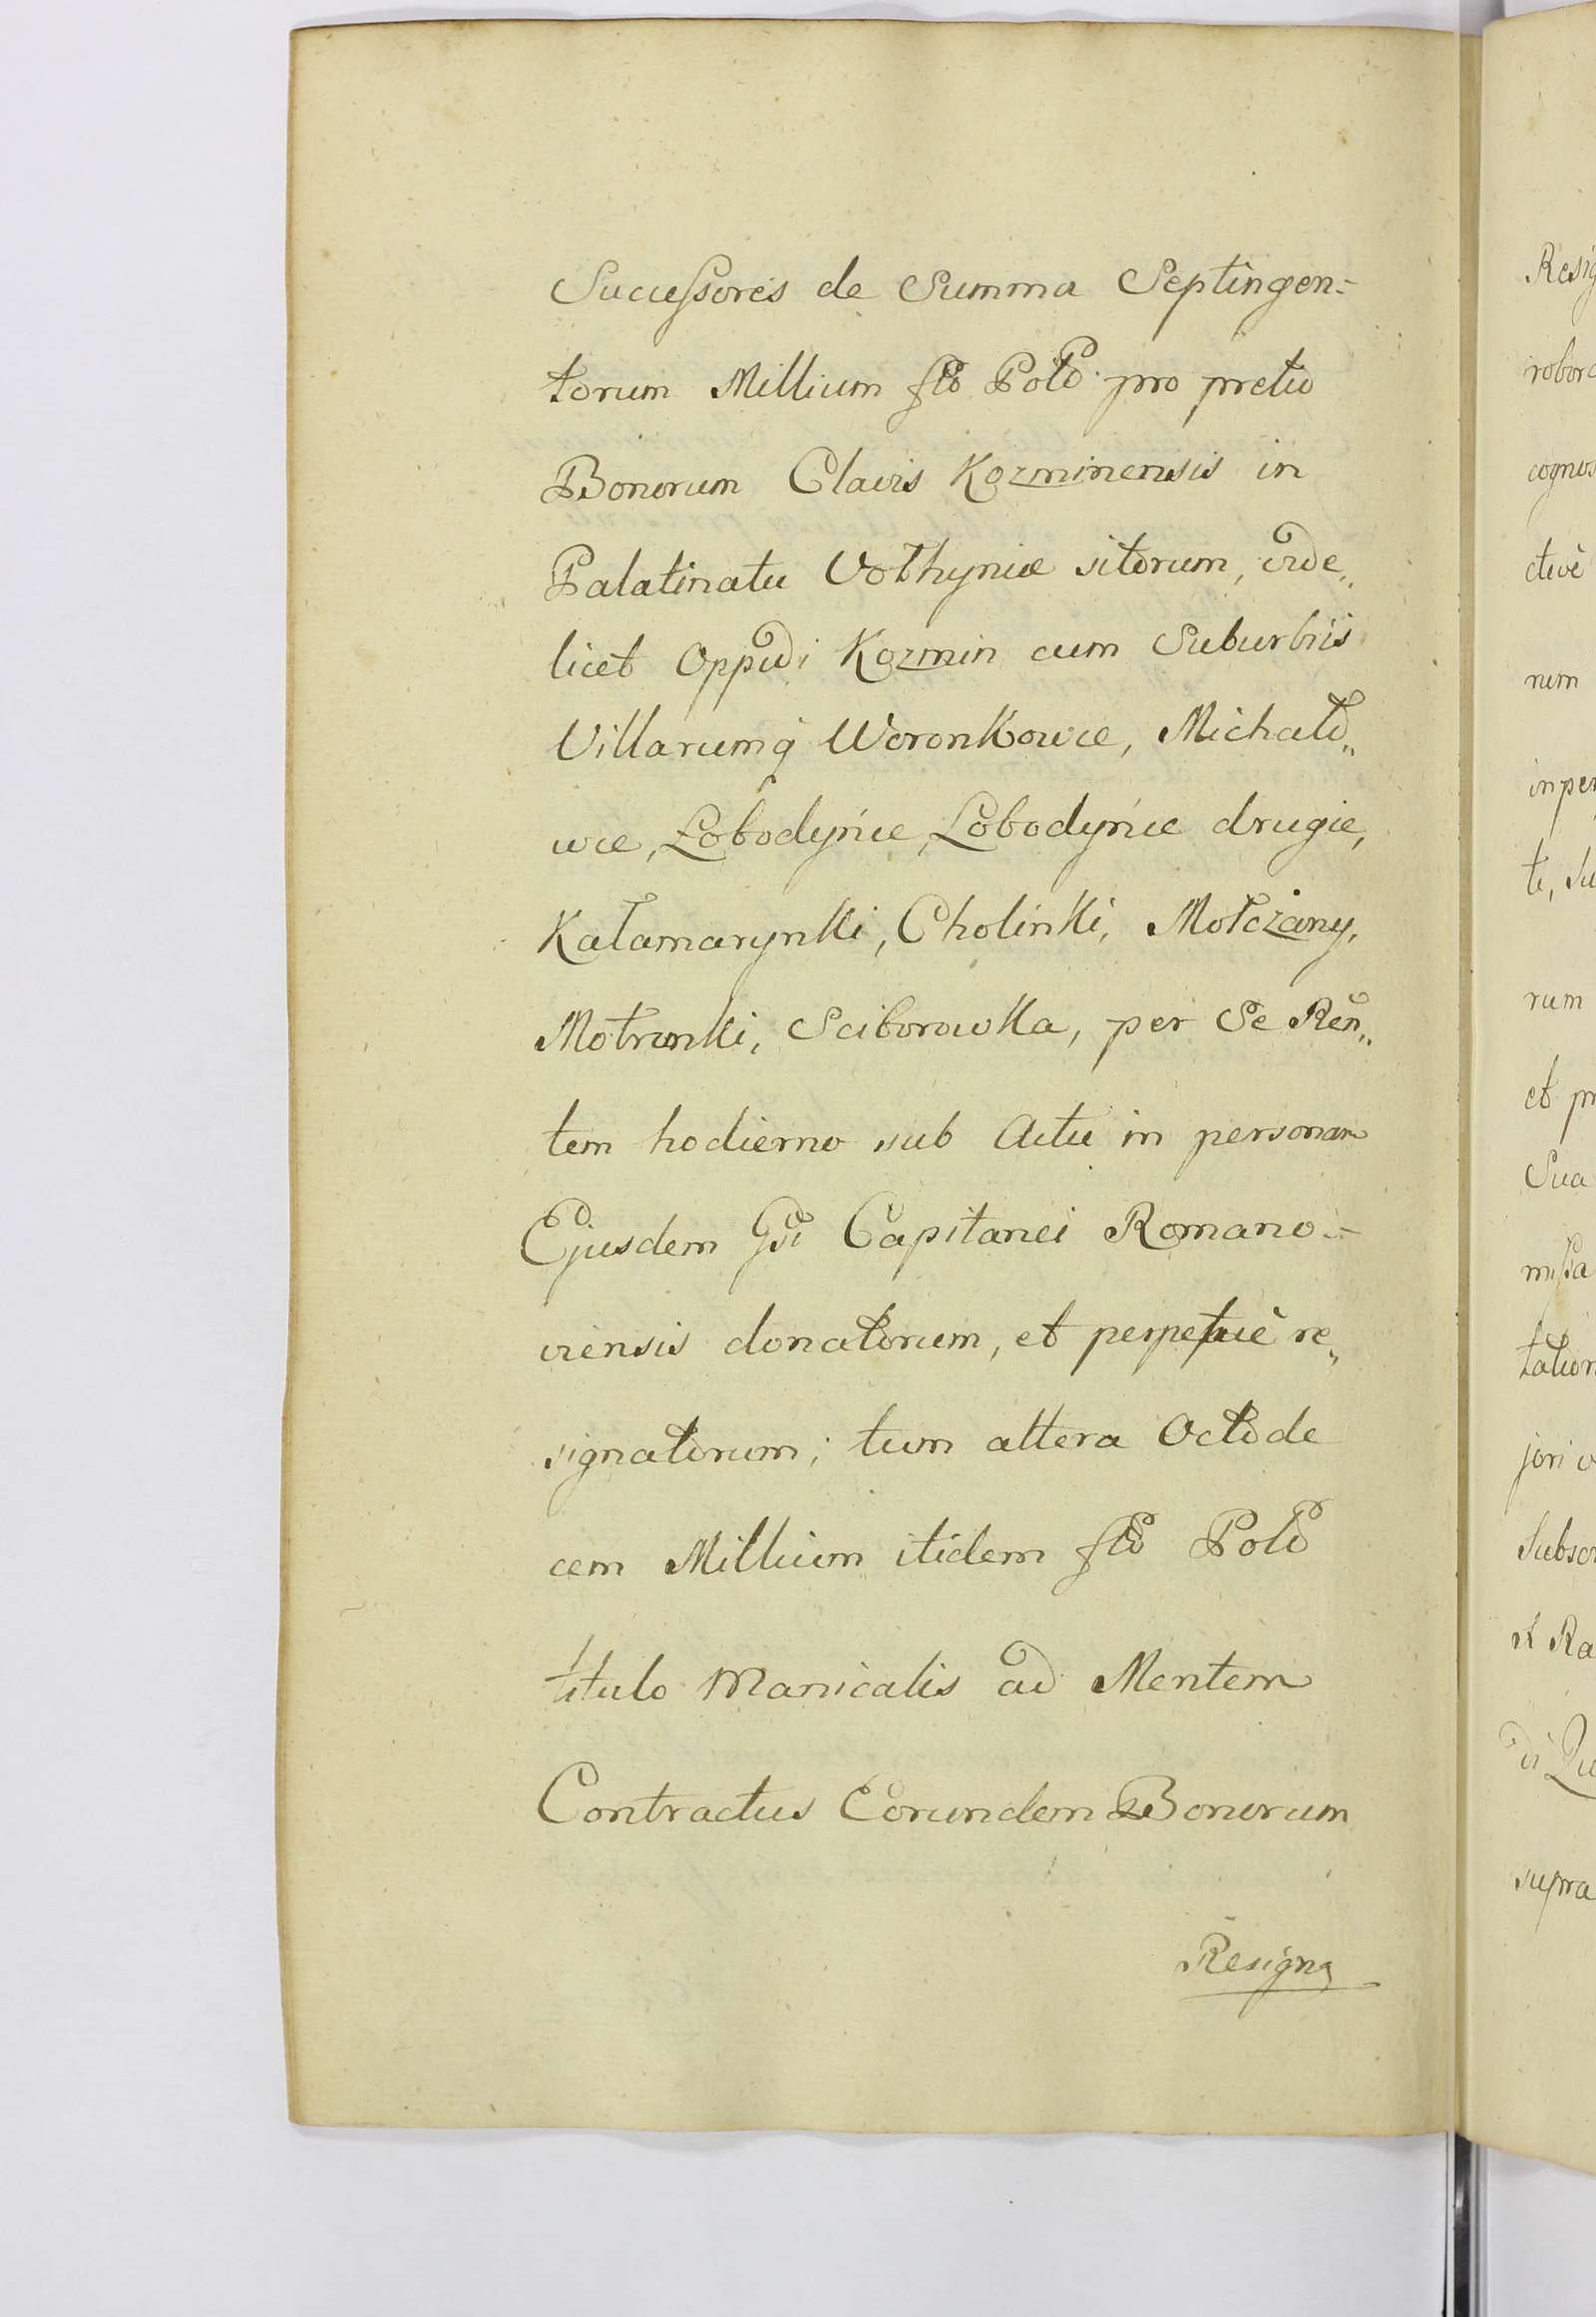 Successores de Summa Septingen=
torum Millium flō Polō pro pretio
Bonorum Clavis Kozminensis in
Palatinatu Vołhyniæ sitorum, vide„
licet Oppidi Kozmin cum Suburbiis
Villarumq́ Woronkowce, Michało„
wce, Łobodyńce, Łobodyńce drugie,
Kałamarynki, Cholinki, Mołczany,
Motrunki, Sciborowka, per Se Rēn„
tem hodierno sub Actu in personam
Ejusdem Gsi Capitanei Romano=
viensis donatorum, et perpetuè re„
signatorum; tum altera Octode
cem Millium itidem flō Polō
titulo Manicalis ad Mentem
Contractus Eorundem Bonorum
Resigna
Resig
robora
cognos
ctivè
num
inper
te, su
rum
et pr
Sua
missa
tation
jori
Subscr
et Ra
di Qu
supra